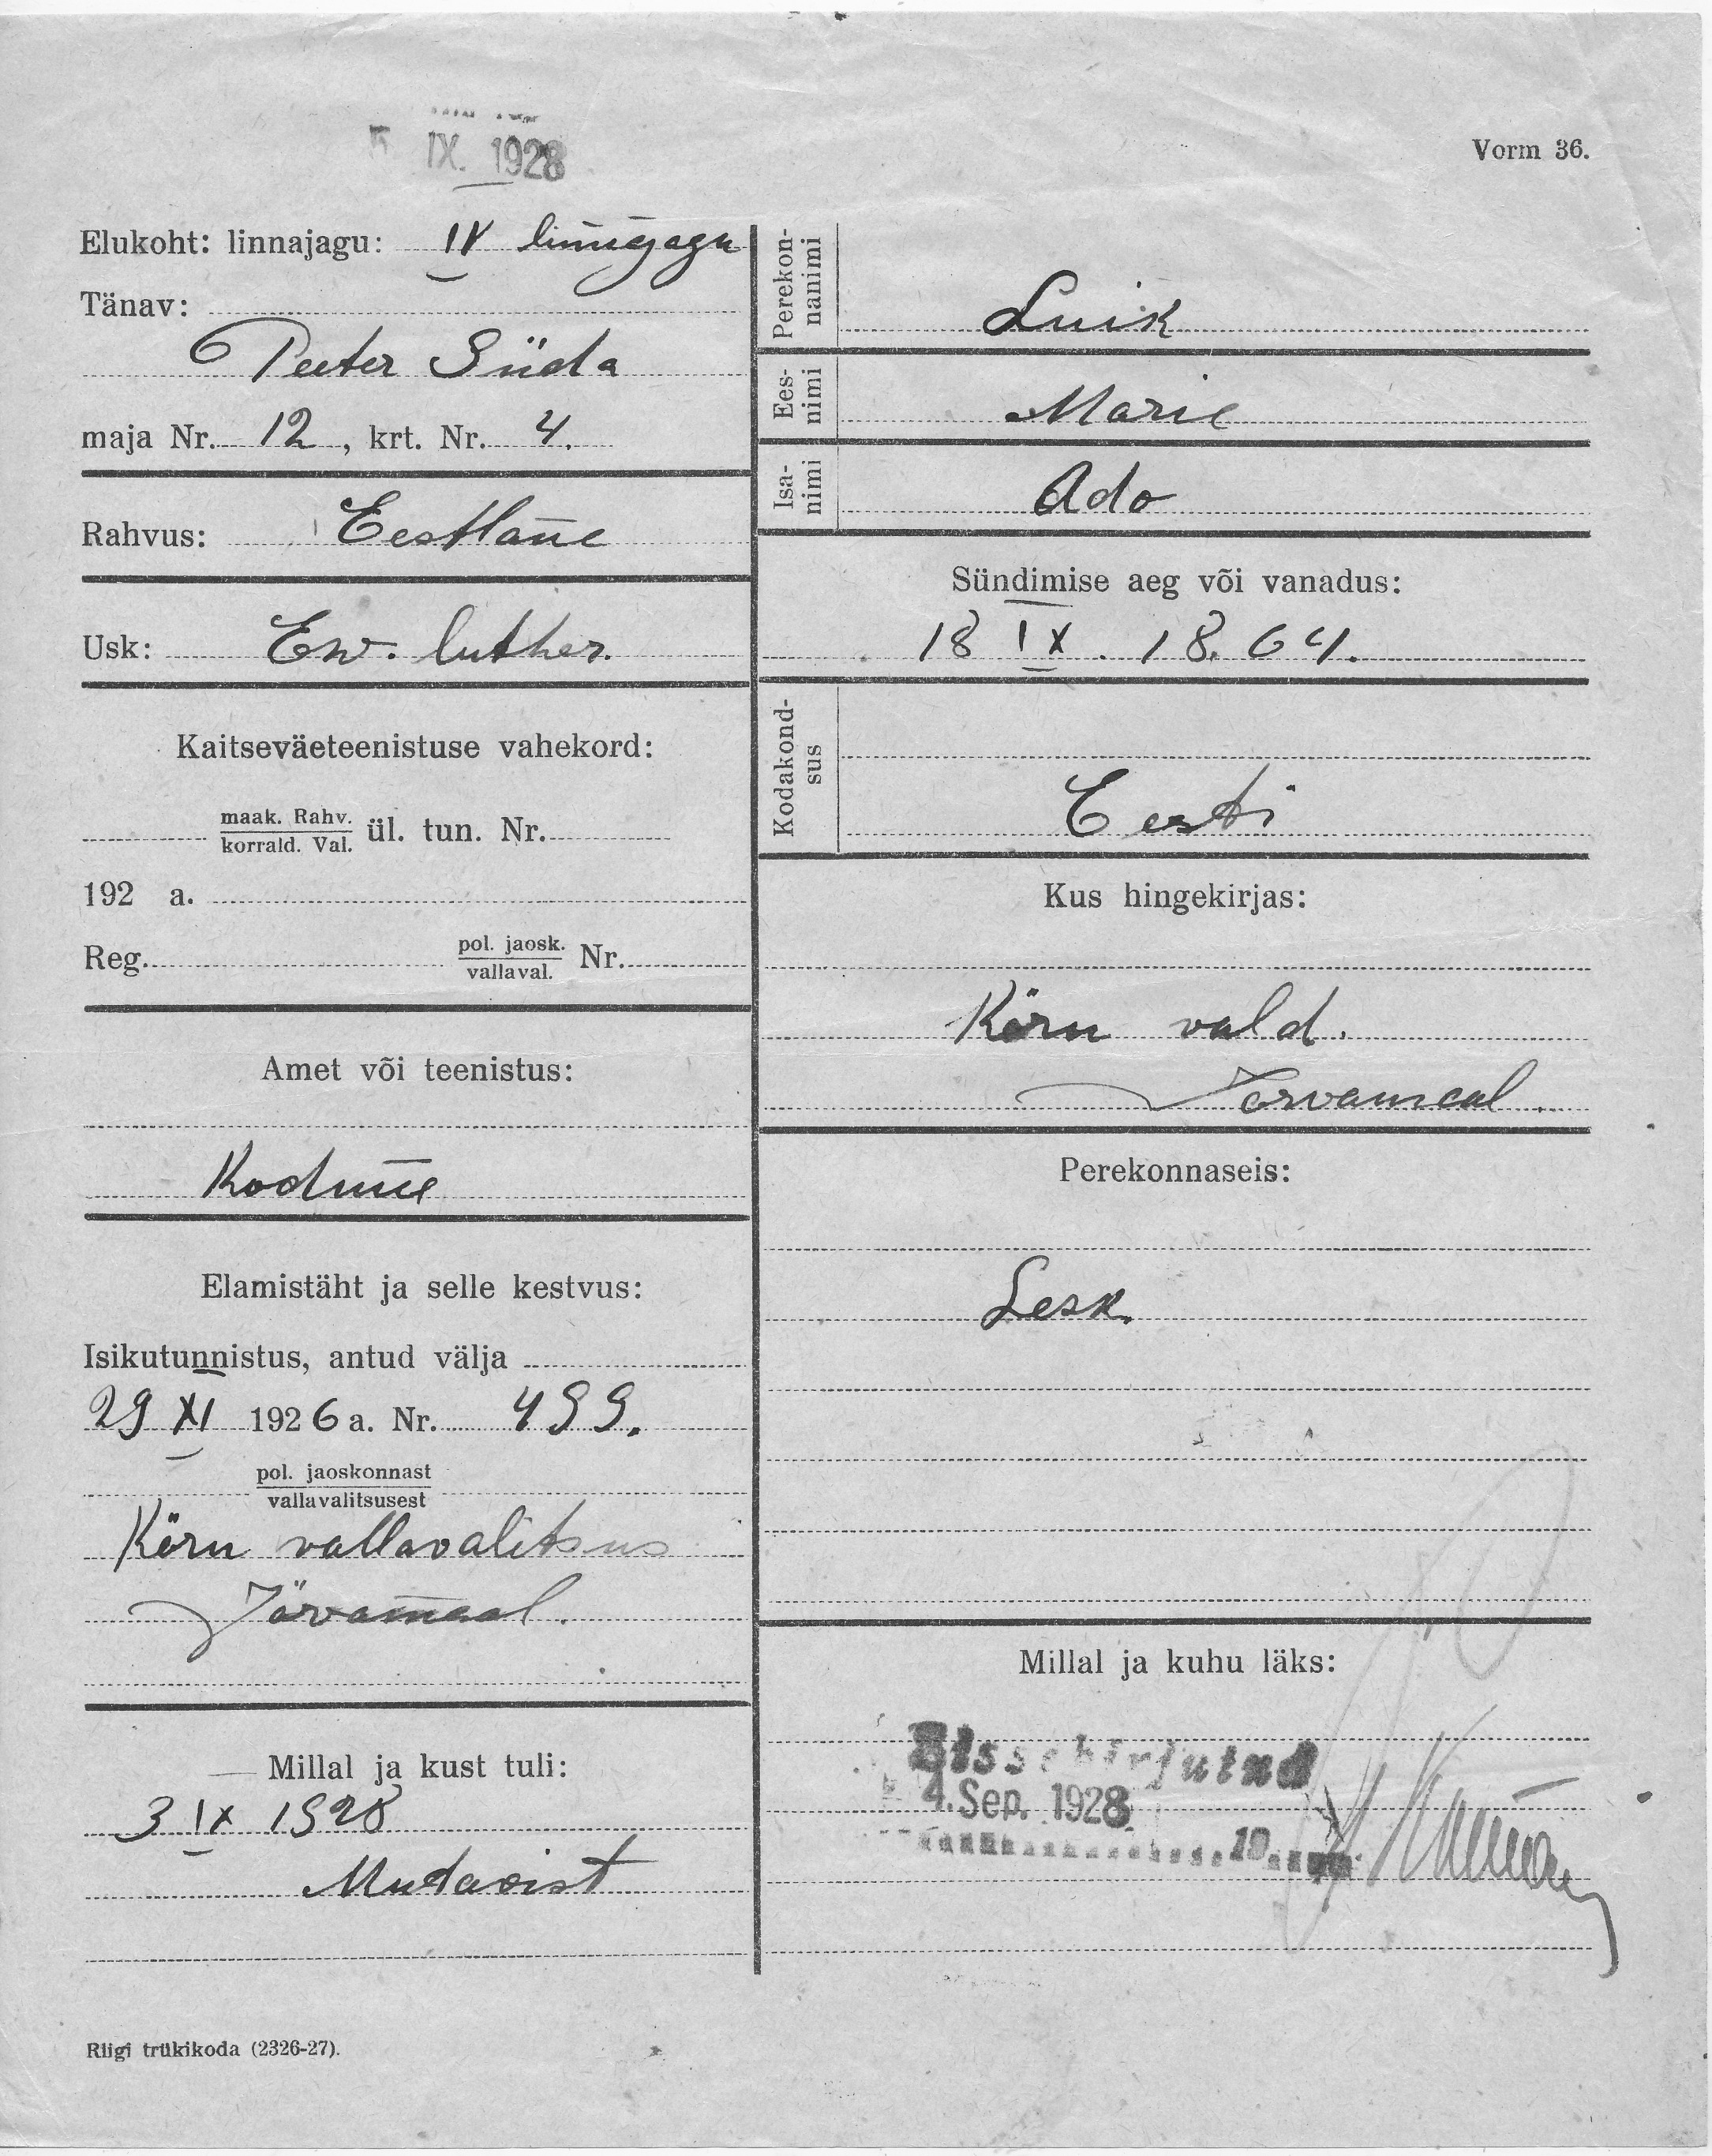 IX. 1928
Vorm 36.
Elukoht: linnajagu: IV linnajagu
Tänav:
Peeter Süda
maja Nr. 12, krt. Nr. 4.
Rahvus: Eestlane
Usk: Ew. luther.
Kaitseväeteenistuse vahekord:
maak. Rahv.
korrald. Val. ül. tun. Nr.
192 a.
Reg. pol. jaosk. Nr.
vallaval.
Amet või teenistus:
Kodune
Elamistäht ja selle kestvus:
Isikutunnistus, antud välja
29 XI 1926 a. Nr. 499.
pol. jaoskonnast
vallavalitsusest
Kärn vallavalitsus
Järvamaal.
Millal ja kust tuli:
3 IX 1928
Riigi trükikoda (2326-27).
Perekon-
nanimi
Luik
Ees-
nimi
Marie
Isa-
nimi
Ado
Sündimise aeg või vanadus:
18 IX. 18.64.
Kodakond-
sus
Eesti
Kus hingekirjas:
Kärn vald.
Järvamaal.
Perekonnaseis:
Lesk.
Millal ja kuhu läks:
Sissekirjutud
4. Sep. 1928
19